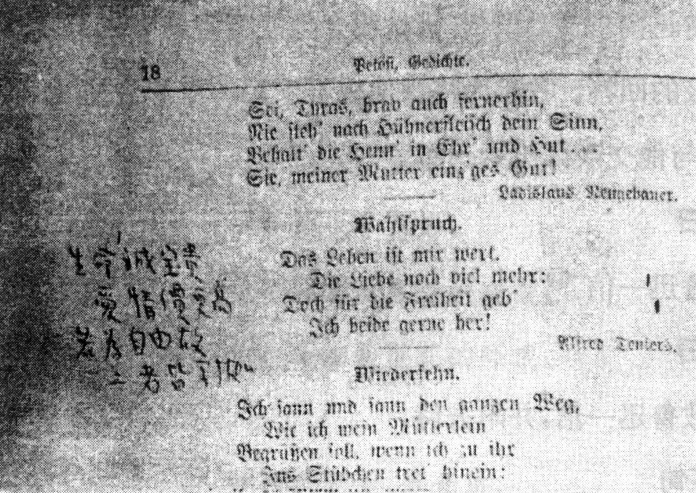 18
Petöfi, Gedichte.
Sei, Tyras, brav auch fernerhin,
Nie steh' nach Hühnerfleisch dein Sinn,
Behalt' die Henn' in Ehr' und Hut
Sie, meiner Mutter einz'ges Gut!
Ladislaus Neugebauer.
Wahlspruch.
Das Leben ist mir wert,
Die Liebe noch viel mehr:
Doch für die Freiheit geb'
Ich beide gerne her!
Alfred Teniers.
生命誠宝貴
愛情價更高
若为自由故
二者皆可抛
Wiedersehn.
Ich sann und sann den ganzen Weg,
Wie ich mein Mütterlein
Begrüßen soll, wenn ich zu ihr
Ins Stübchen tret' hinein: